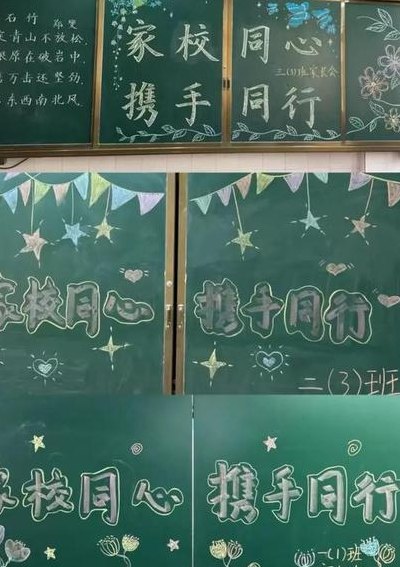 石竹 郑燮
青山不放松
原在破岩中
击还坚劲
东西南北风
家校同心
携手同行
三(3)班家长会
家校同心
携手同行
二(3)班
家校同心
携手同行
一(1)班